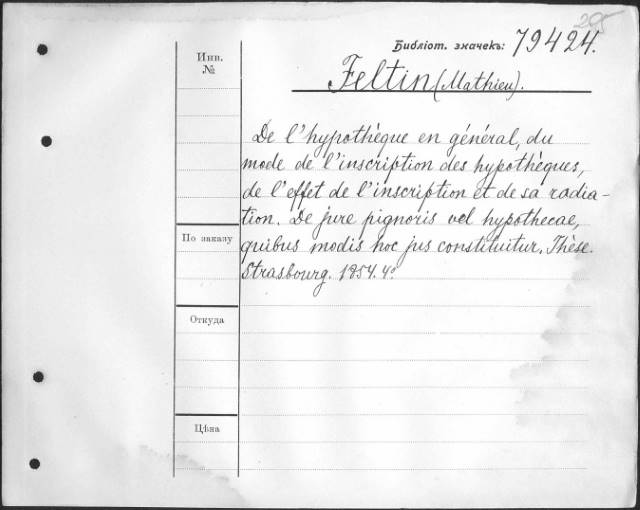 205
Библіот. значекъ: 79424.
Инв.
№
Feltin (Mathieu).
De l'hypothèque en général, du
mode de l'inscription des hypothèques,
de l'effet de l'inscription et de sa radia-
tion. De jure pignoris vel hypothecae,
По заказу
quibus modis hoc jus constituitur. Thèse.
Strasbourg. 1854. 4º
Откуда
Цѣна